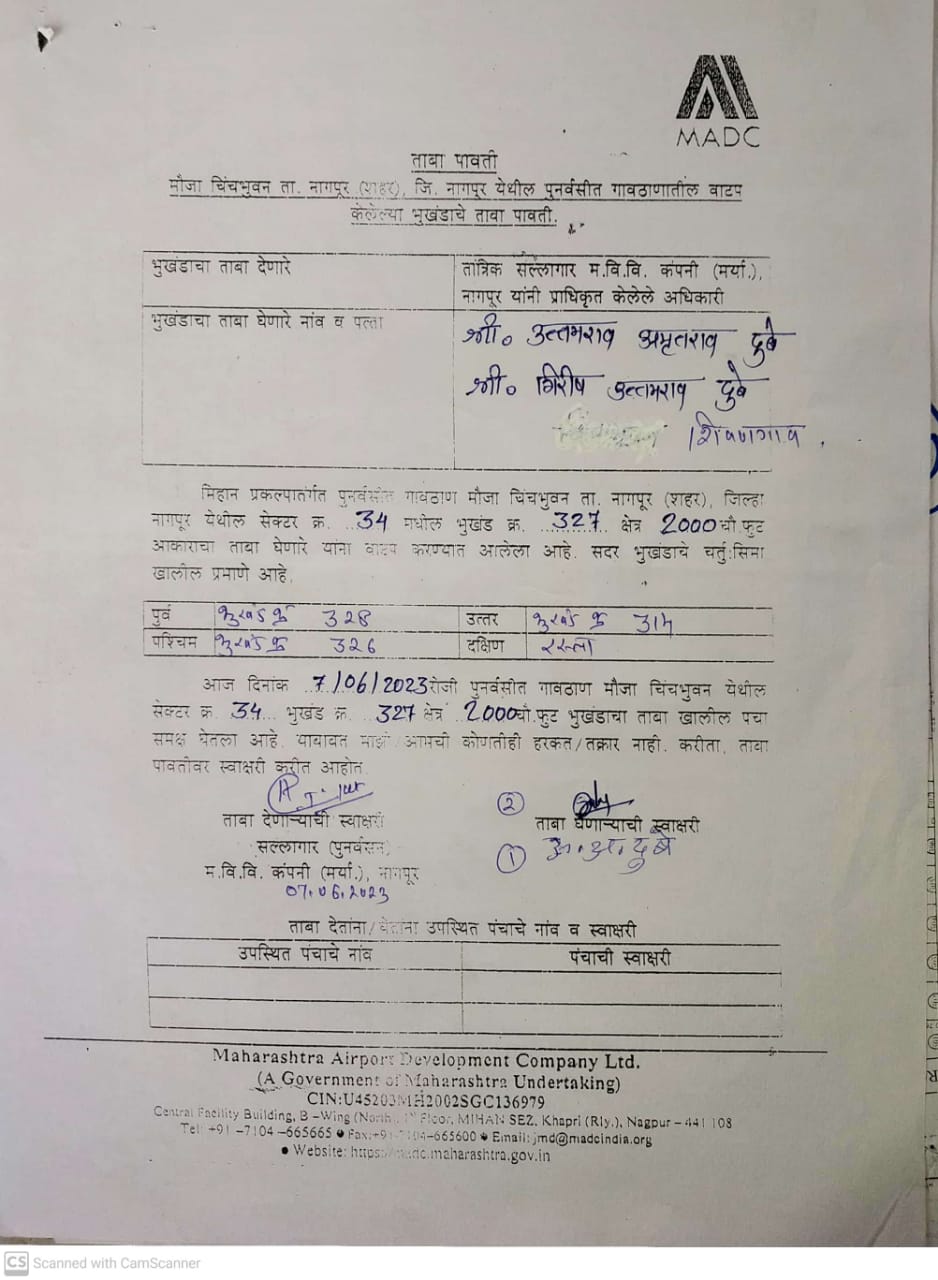 MADC
ताबा पावती
मौजा चिंचभुवन ता. नागपूर (शहर), जि. नागपूर येथील पुनर्वसीत गावठाणातील वाटप
केलेल्या भुखंडाचे ताबा पावती.
भुखंडाचा ताबा देणारे
तांत्रिक सल्लागार म.वि.वि. कंपनी (मर्या.),
नागपूर यांनी प्राधिकृत केलेले अधिकारी
भुखंडाचा ताबा घेणारे नांव व पत्ता
श्री० उत्तमराव अमृतराव दुबे
श्री० गिरीष उत्तमराव दुबे
शिवणगाव .
मिहान प्रकल्पातंर्गत पुनर्वसीत गावठाण मौजा चिंचभुवन ता. नागपूर (शहर), जिल्हा
नागपूर येथील सेक्टर क्र. ..34 मधील भुखंड क्र. ..327.. क्षेत्र 2000 चौ.फुट
आकाराचा ताबा घेणारे यांना वाटप करण्यात आलेला आहे. सदर भुखंडाचे चर्तु:सिमा
खालील प्रमाणे आहे.
पुर्व भुखंड क्र 328 उत्तर भुखंड क्र 314
पश्चिम भुखंड क्र 326 दक्षिण रस्ता
आज दिनांक ..7/06/2023 रोजी पुनर्वसीत गावठाण मौजा चिंचभुवन येथील
सेक्टर क्र. 34.. भुखंड क्र. .327 क्षेत्र .2000 चौ.फुट भुखंडाचा ताबा खालील पंचा
समक्ष घेतला आहे. याबाबत माझी/आमची कोणतीही हरकत/तक्रार नाही. करीता, ताबा
पावतीवर स्वाक्षरी करीत आहोत.
ताबा देणाऱ्याची स्वाक्षरी
सल्लागार (पुनर्वसन)
म.वि.वि. कंपनी (मर्या.), नागपूर
07.06.2023
②
ताबा घेणाऱ्याची स्वाक्षरी
① उ.अ.दुबे
ताबा देतांना/घेतांना उपस्थित पंचाचे नांव व स्वाक्षरी
उपस्थित पंचाचे नांव पंचाची स्वाक्षरी
Maharashtra Airport Development Company Ltd.
(A Government of Maharashtra Undertaking)
CIN:U45203MH2002SGC136979
Central Facility Building, B –Wing (North), 1st Floor, MIHAN SEZ, Khapri (Rly.), Nagpur – 441 108
Tel: +91 –7104 –665665 ● Fax:+91-7104–665600 ● Email: jmd@madcindia.org
● Website: https://madc.maharashtra.gov.in
CS Scanned with CamScanner